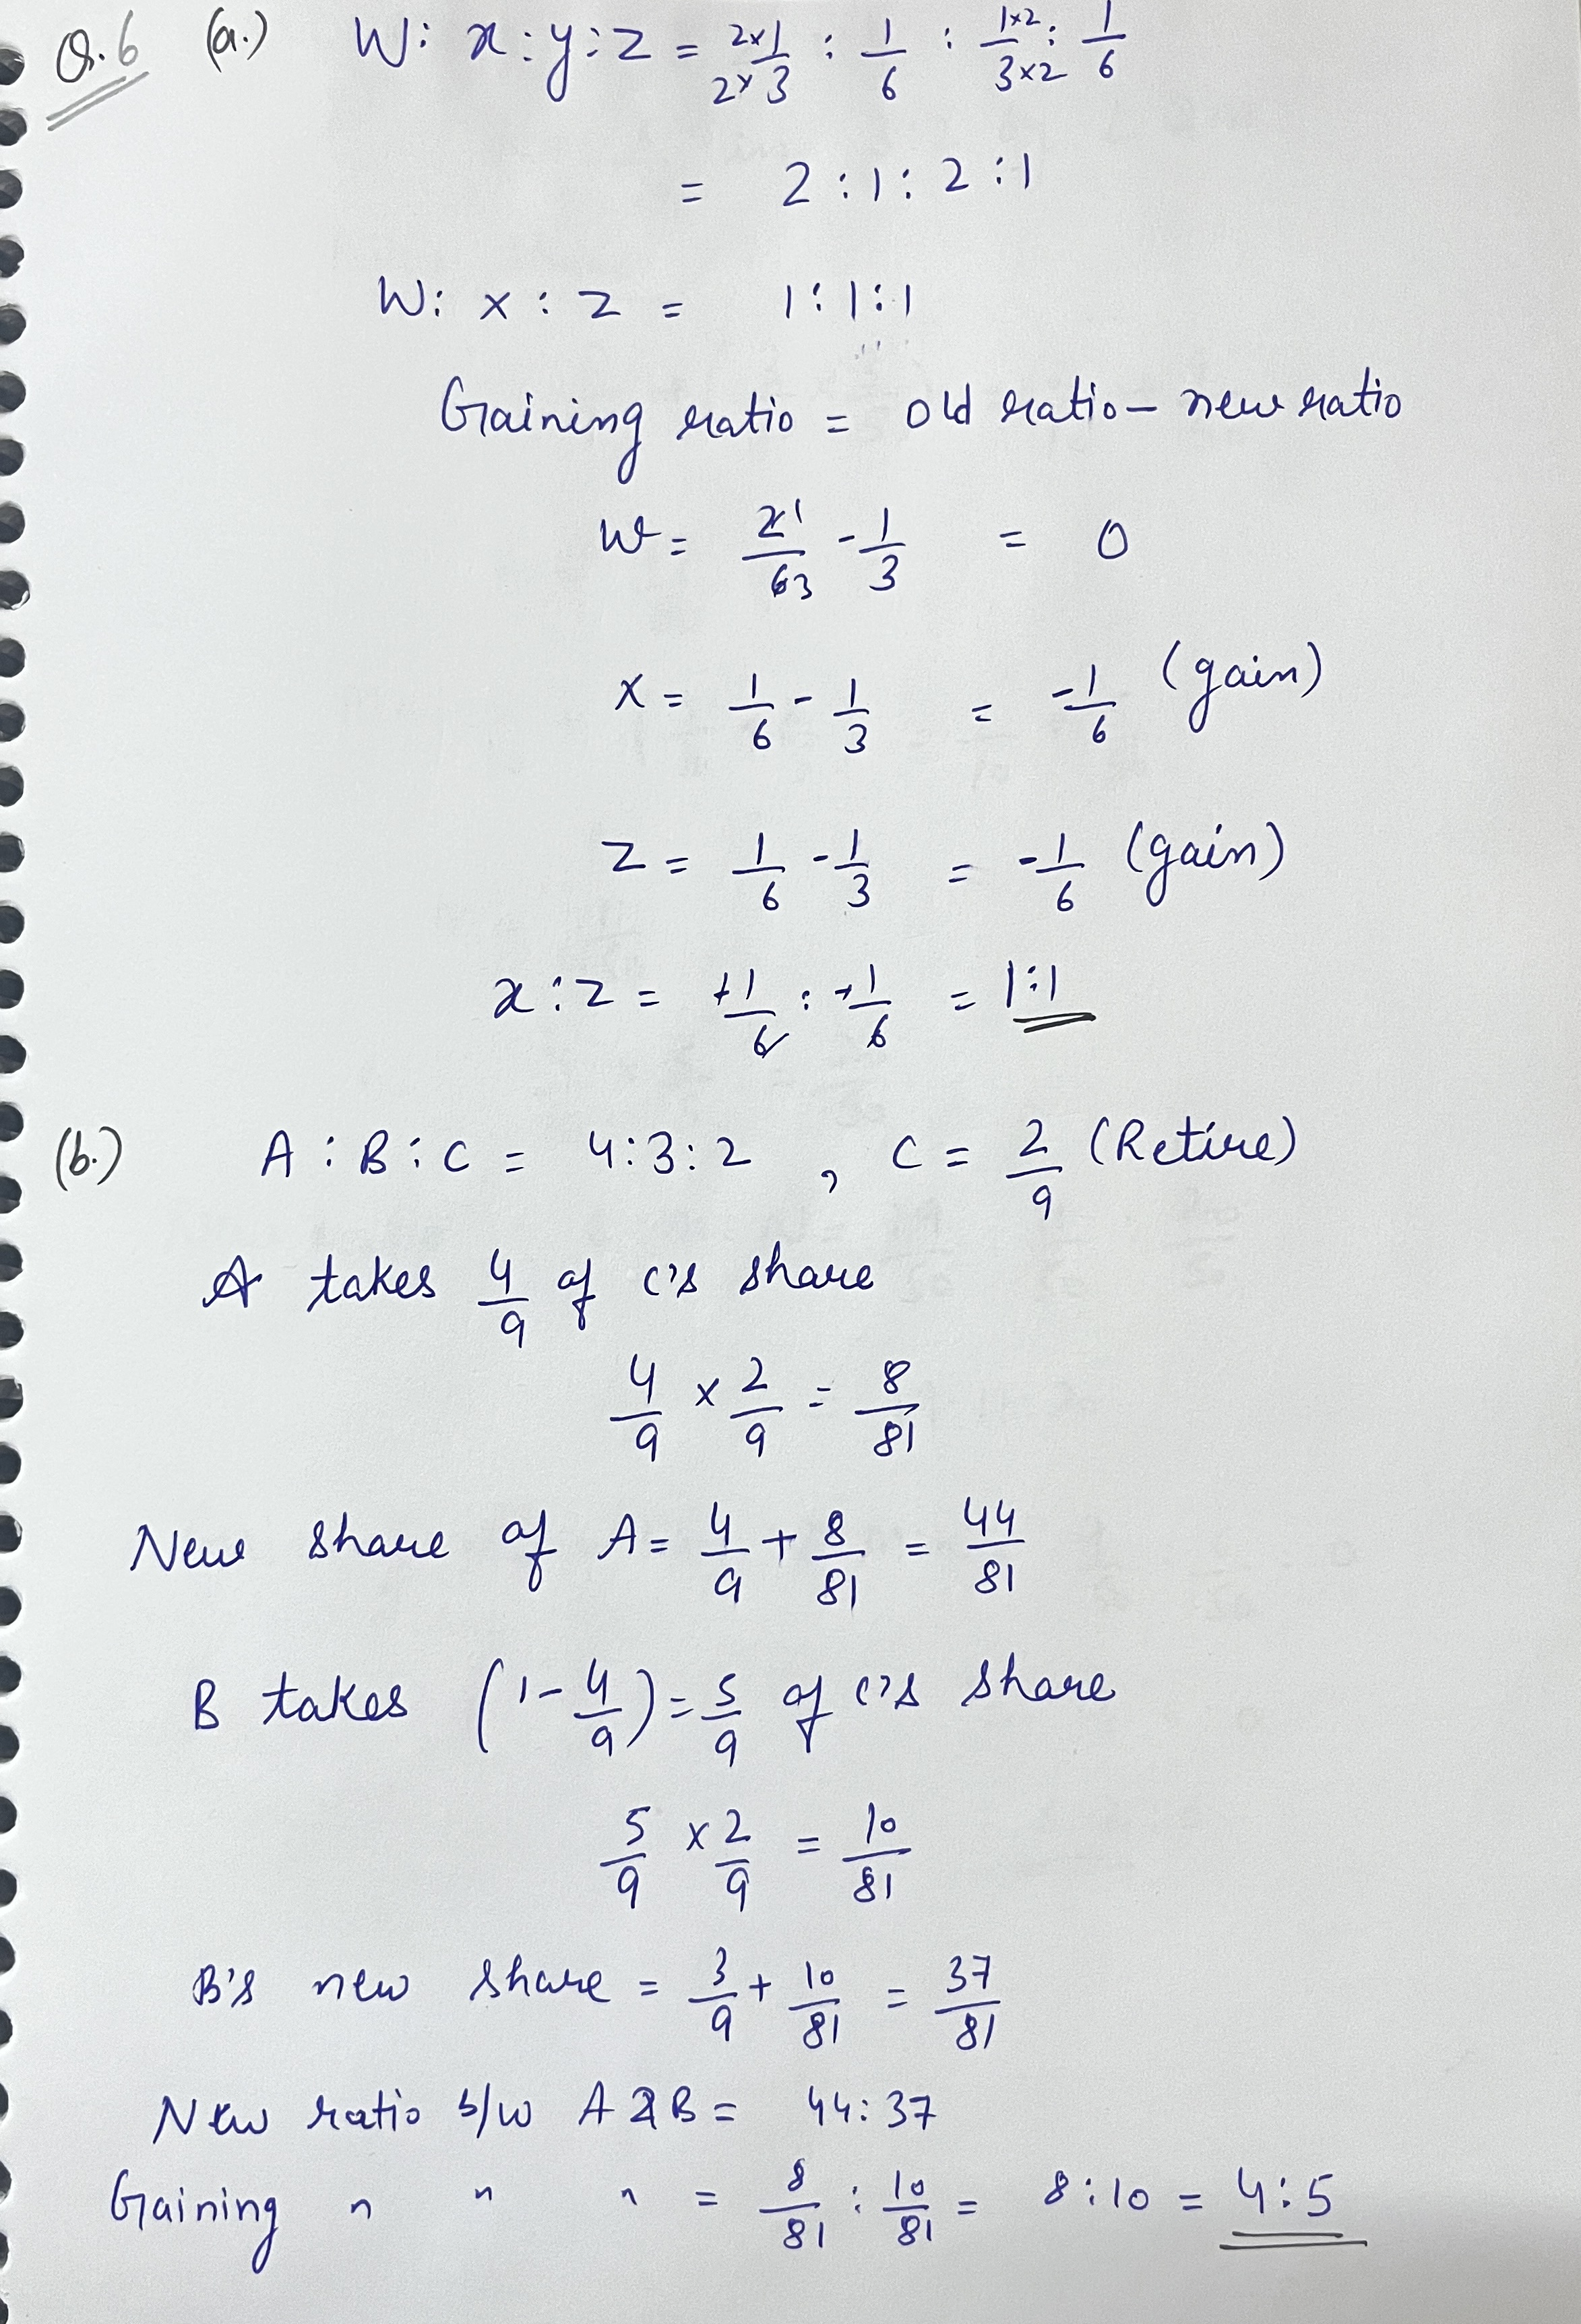 Q.6 (a.) W: x : y : z = 2×1/2×3 : 1/6 : 1×2/3×2 : 1/6
= 2 : 1 : 2 : 1
W : x : z = 1 : 1 : 1
Gaining ratio = old ratio - new ratio
W = 2 1/6 3 - 1/3 = 0
x = 1/6 - 1/3 = -1/6 (gain)
z = 1/6 - 1/3 = -1/6 (gain)
x : z = +1/6 : +1/6 = 1:1
(b.) A : B : C = 4:3:2 , C = 2/9 (Retire)
A takes 4/9 of C's share
4/9 × 2/9 = 8/81
New share of A = 4/9 + 8/81 = 44/81
B takes (1 - 4/9) = 5/9 of C's share
5/9 × 2/9 = 10/81
B's new share = 3/9 + 10/81 = 37/81
New ratio b/w A & B = 44:37
Gaining " " " = 8/81 : 10/81 = 8:10 = 4:5